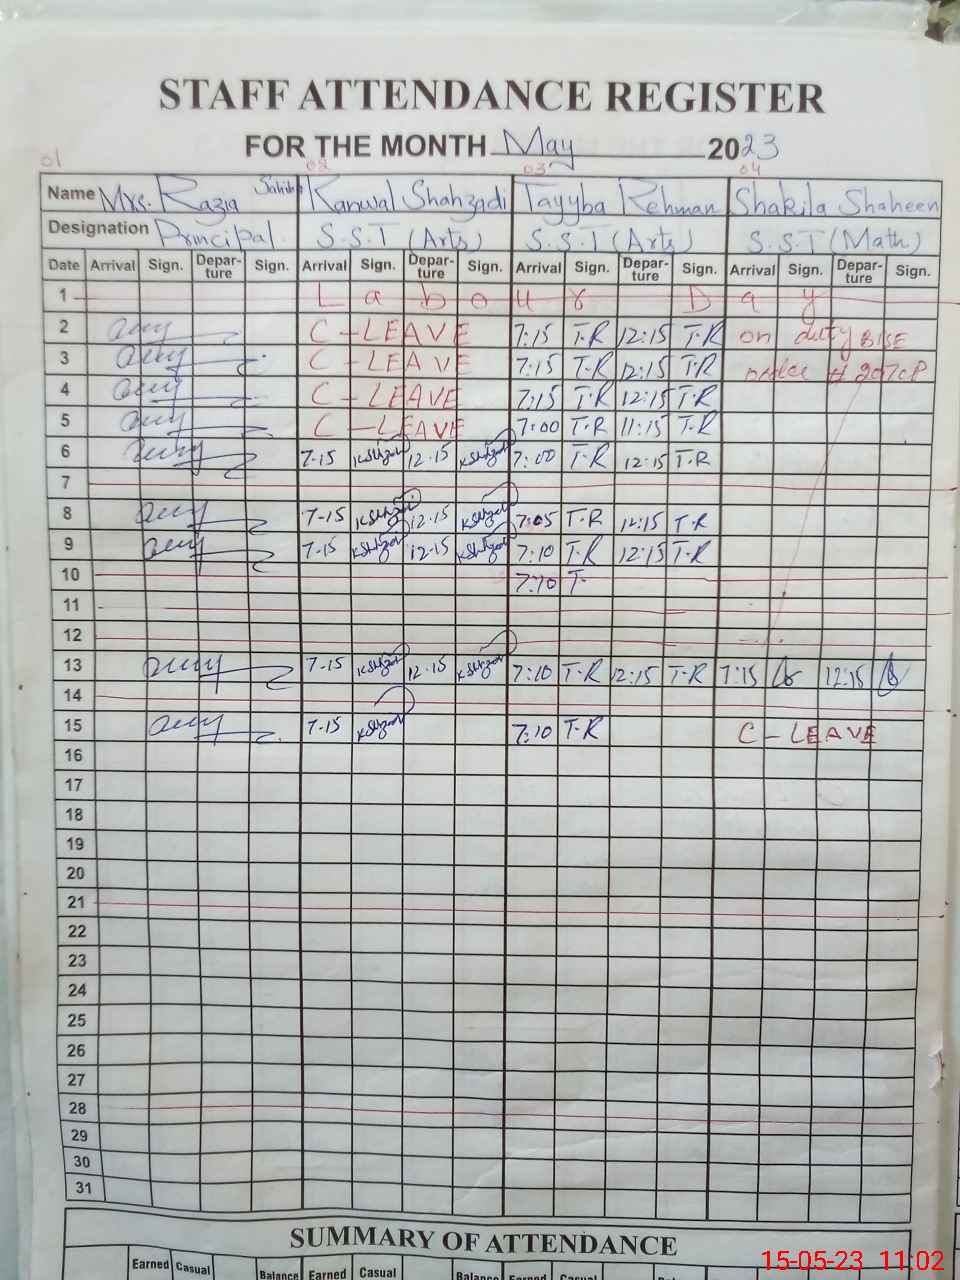 STAFF ATTENDANCE REGISTER
FOR THE MONTH May 2023
01 02 03 04
Name Mrs. Razia Sahiba Kanwal Shahzadi Tayyba Rehman Shakila Shaheen
Designation Principal. S.S.T (Arts) S.S.T (Arts) S.S.T (Math)
Date Arrival Sign. Depar-ture Sign. Arrival Sign. Depar-ture Sign. Arrival Sign. Depar-ture Sign. Arrival Sign. Depar-ture Sign.
1 Labour Day
2 C-LEAVE 7:15 T.R 12:15 T.R on duty BISE
3 C-LEAVE 7:15 T.R 12:15 T.R
4 C-LEAVE 7:15 T.R 12:15 T.R
5 C-LEAVE 7:00 T.R 11:15 T.R
6 7-15 12.15 7:00 T-R 12:15 T.R
7
8 7-15 12.15 7:05 T.R 12:15 T.R
9 7-15 12-15 7:10 T.R 12:15 T.R
10 7:10 T-
11
12
13 7-15 12.15 7:10 T.R 12:15 T.R 7:15 12:15
14
15 7-15 7:10 T.R C-LEAVE
16
17
18
19
20
21
22
23
24
25
26
27
28
29
30
31
SUMMARY OF ATTENDANCE
Earned Casual Balance Earned Casual Balance Earned Casual
15-05-23 11:02